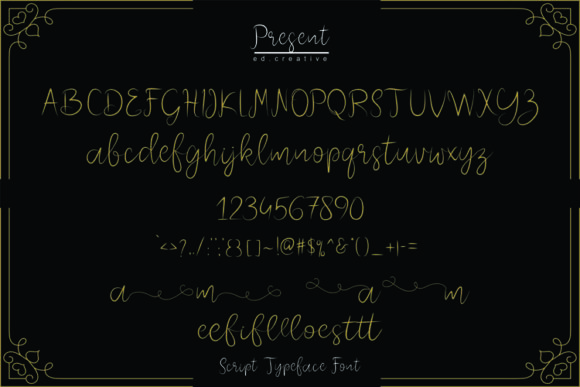 Present
ed.creative
ABCDEFGHIJKLMNOPQRSTUVWXYZ
abcdefghijklmnopqrstuvwxyz
1234567890
`<>?../:";'{}[]~!@#$%^&*()_+|-=
a m a m
eefifllloesttt
Script Typeface Font